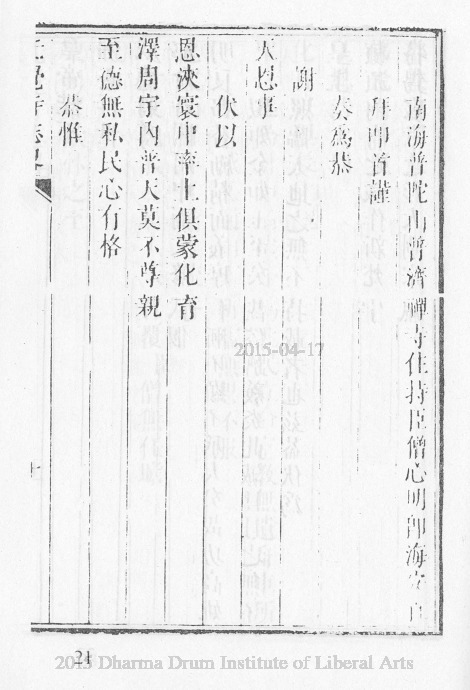 南海普陀山普濟禪寺住持臣僧心明即海安百
拜即首謹
奏為恭
謝
天恩事
伏以
恩浹寰中率土俱蒙化育
澤周宇內普天莫不尊親
至德無私民心有格
恭惟
2015-04-17
24
2015 Dharma Drum Institute of Liberal Arts